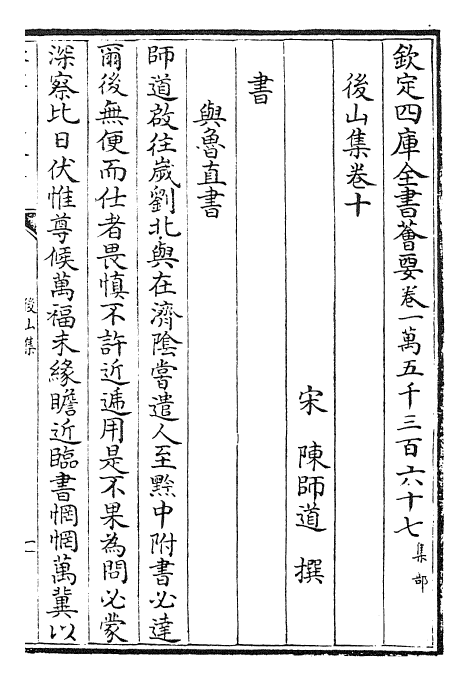 欽定四庫全書薈要卷一萬五千三百六十七集部
後山集卷十
宋 陳師道 撰
書
與魯直書
師道啟往歲劉北與在濟陰嘗遣人至黔中附書必達
爾後無便而仕者畏慎不許近遞用是不果為問必蒙
深察比日伏惟尊候萬福未緣瞻近臨書惘惘萬冀以
後山集
一